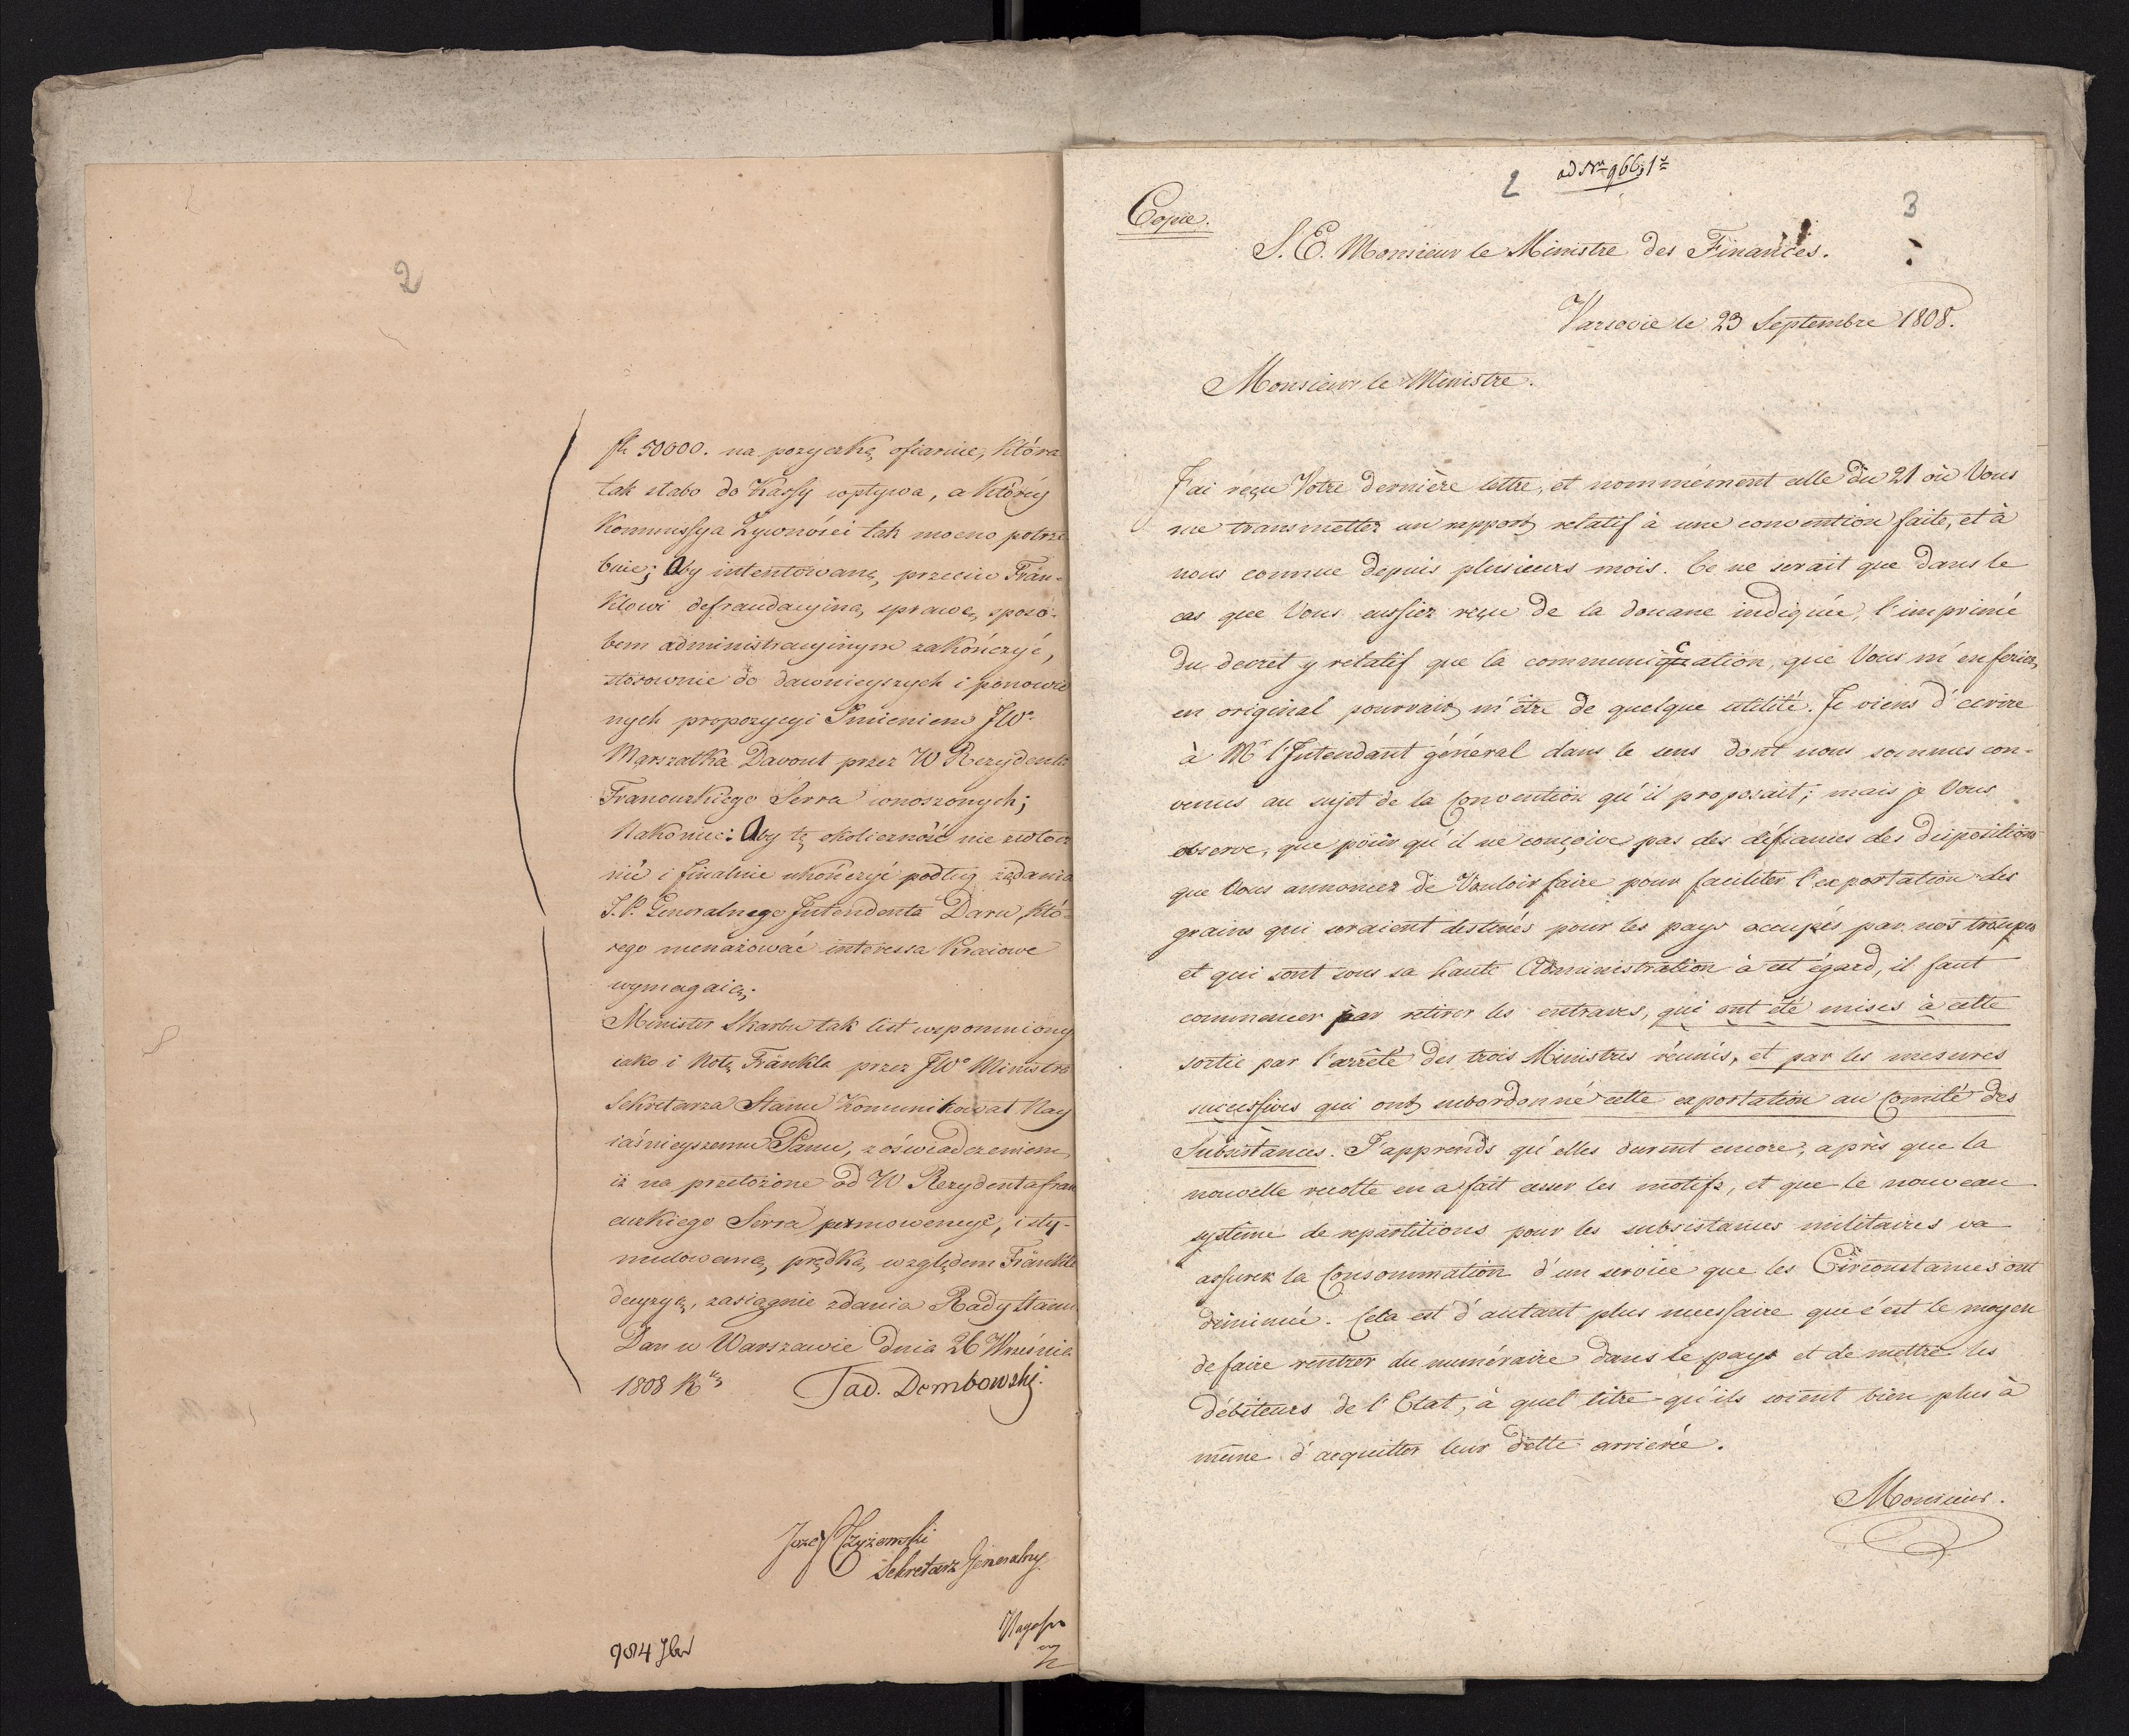 2
fl. 50000. na pozyczkę ofiaruie, która
tak słabo do Kassy wpływa, a którey
Kommissya Żywności tak mocno potrze
buie; Aby intentowaną przeciw Frän-
klowi defraudacyiną sprawę, sposo-
bem administracyinym zakończyć,
stosownie do dawnieyszych i ponowio
nych propozycyi Imieniem JWo
Marszałka Davout przez W Rezydenta
Francuzkiego Serra wnoszonych;
Nakoniec: Aby tę okoliczność nie zwłocz
nie i finalnie ukończyć podług żądania
J.P. Generalnego Intendenta Daru, któ-
rego menażować interessa Kraiowe
wymagaią;
Minister Skarbu tak list wspomniony
iako i Notę Fränkla przez JWo Ministra
Sekretarza Stanu komunikował Nay
iaśnieyszemu Panu, z oświadczeniem
iż na przełożone od W Rezydenta fran
cuzkiego Serra i sty-
mulowaną prędką względem Fränkla
decyzyą, zasiągnie zdania Rady Stanu.
Dan w Warszawie dnia 26 Września
1808 Rku Tad. Dembowski.
Jozef Czyżewski
Sekretarz Generalny
984
ad Nrm 966,
2
3
Copie.
S. E. Monsieur le Ministre des Finances.
Varsovie le 23 Septembre 1808.
Monsieur le Ministre.
J'ai reçu Votre dernière lettre, et nommément celle du 21 où Vous
me transmettez un rapport relatif à une convention faite, et à
nous connue depuis plusieurs mois. Ce ne serait que dans le
cas que Vous eussiez reçu de la douane indiquée, l'imprimé
du decret y relatif que la communication, que Vous m'en feriez,
en original pourrait m'être de quelque utilité. Je viens d'ecrire
à Mr l'Intendant général dans le sens dont nous sommes con-
venus au sujet de la Convention qu'il proposait; mais je Vous
observe, que pour qu'il ne conçoive pas des défiances des dispositions
que Vous annoncez de Vouloir faire pour faciliter l'exportation des
grains qui seraient destinés pour les pays occupés par nos troupes
et qui sont sous sa haute Administration à cet égard, il faut
commencer par retirer les entraves, qui ont été mises à cette
sortie par l'arrêté des trois Ministres réunis, et par les mesures
successives qui ont subordonné cette exportation au Comité des
Subsistances. J'apprends qu'elles durent encore, après que la
nouvelle recolte en a fait cesser les motifs, et que le nouveau
système de repartitions pour les subsistances militaires va
assurer la Consommation d'un service que les Circonstances ont
diminué. Cela est d'autant plus necessaire que c'est le moyen
de faire rentrer du numéraire dans le pays et de mettre les
débiteurs de l'Etat, à quel titre qu'ils soient bien plus à
même d'acquitter leur dette arrierée.
Monsieur.